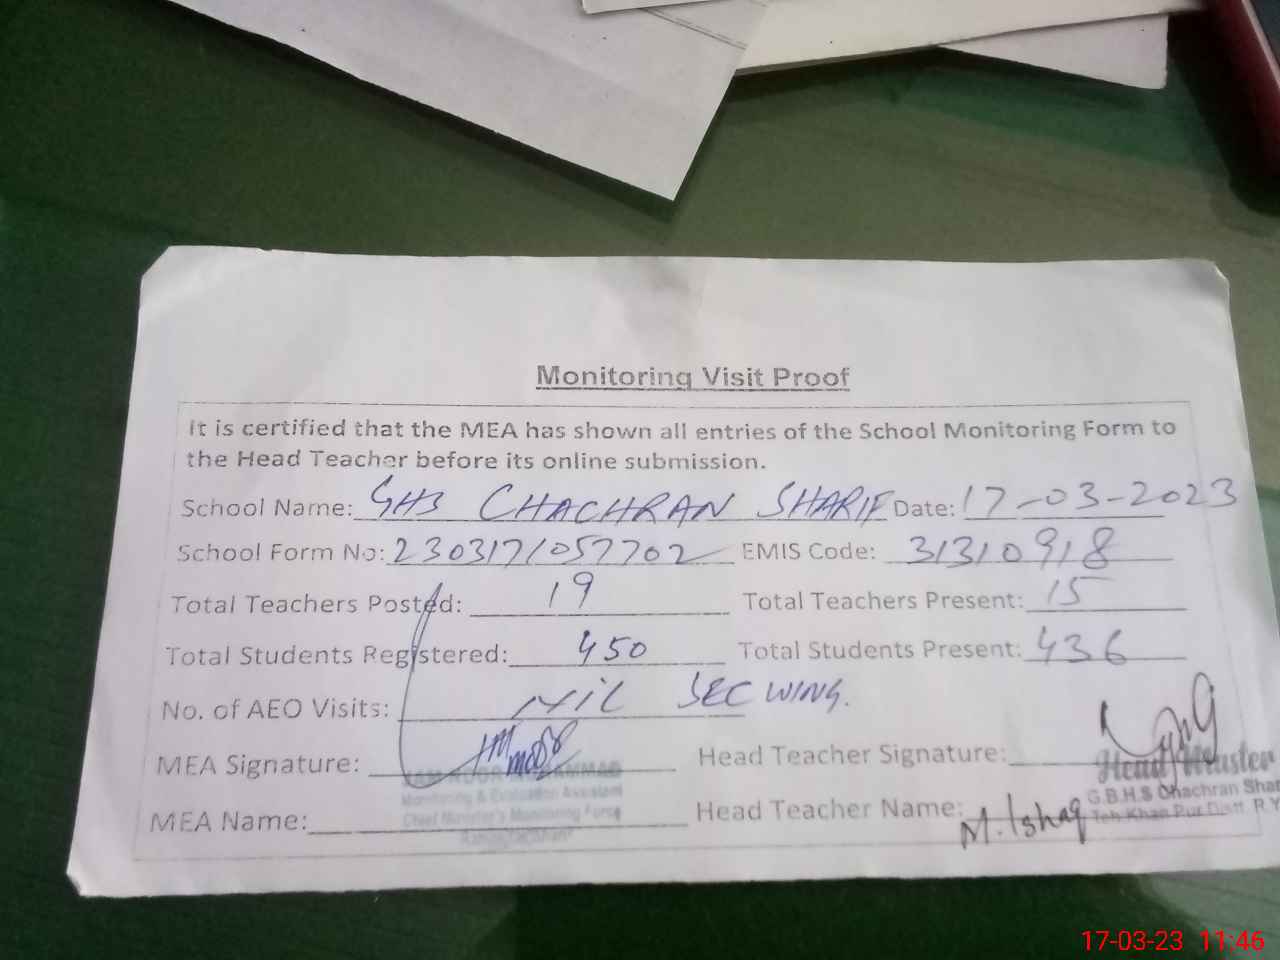 Monitoring Visit Proof
It is certified that the MEA has shown all entries of the School Monitoring Form to
the Head Teacher before its online submission.
School Name: GHS CHACHRAN SHARIF Date: 17-03-2023
School Form No: 2303171057702 EMIS Code: 31310918
Total Teachers Posted: 19 Total Teachers Present: 15
Total Students Registered: 450 Total Students Present: 436
No. of AEO Visits: Nil SEC WING.
MEA Signature: Head Teacher Signature:
Head Master
Monitoring & Evaluation Assistant
G.B.H.S Chachran Shar
MEA Name: Head Teacher Name: M. Ishaq
Chief Minister's Monitoring Force
Teh Khan Pur Distt R.Y
17-03-23 11:46